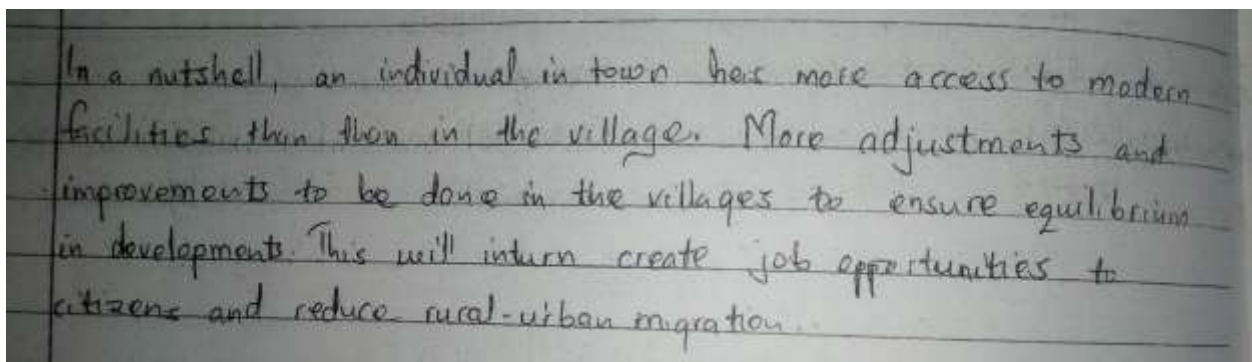 In a nutshell, an individual in town has more access to modern
facilities than than in the village. More adjustments and
improvements to be done in the villages to ensure equilibrium
in developments. This will inturn create job opportunities to
citizens and reduce rural-urban migration.